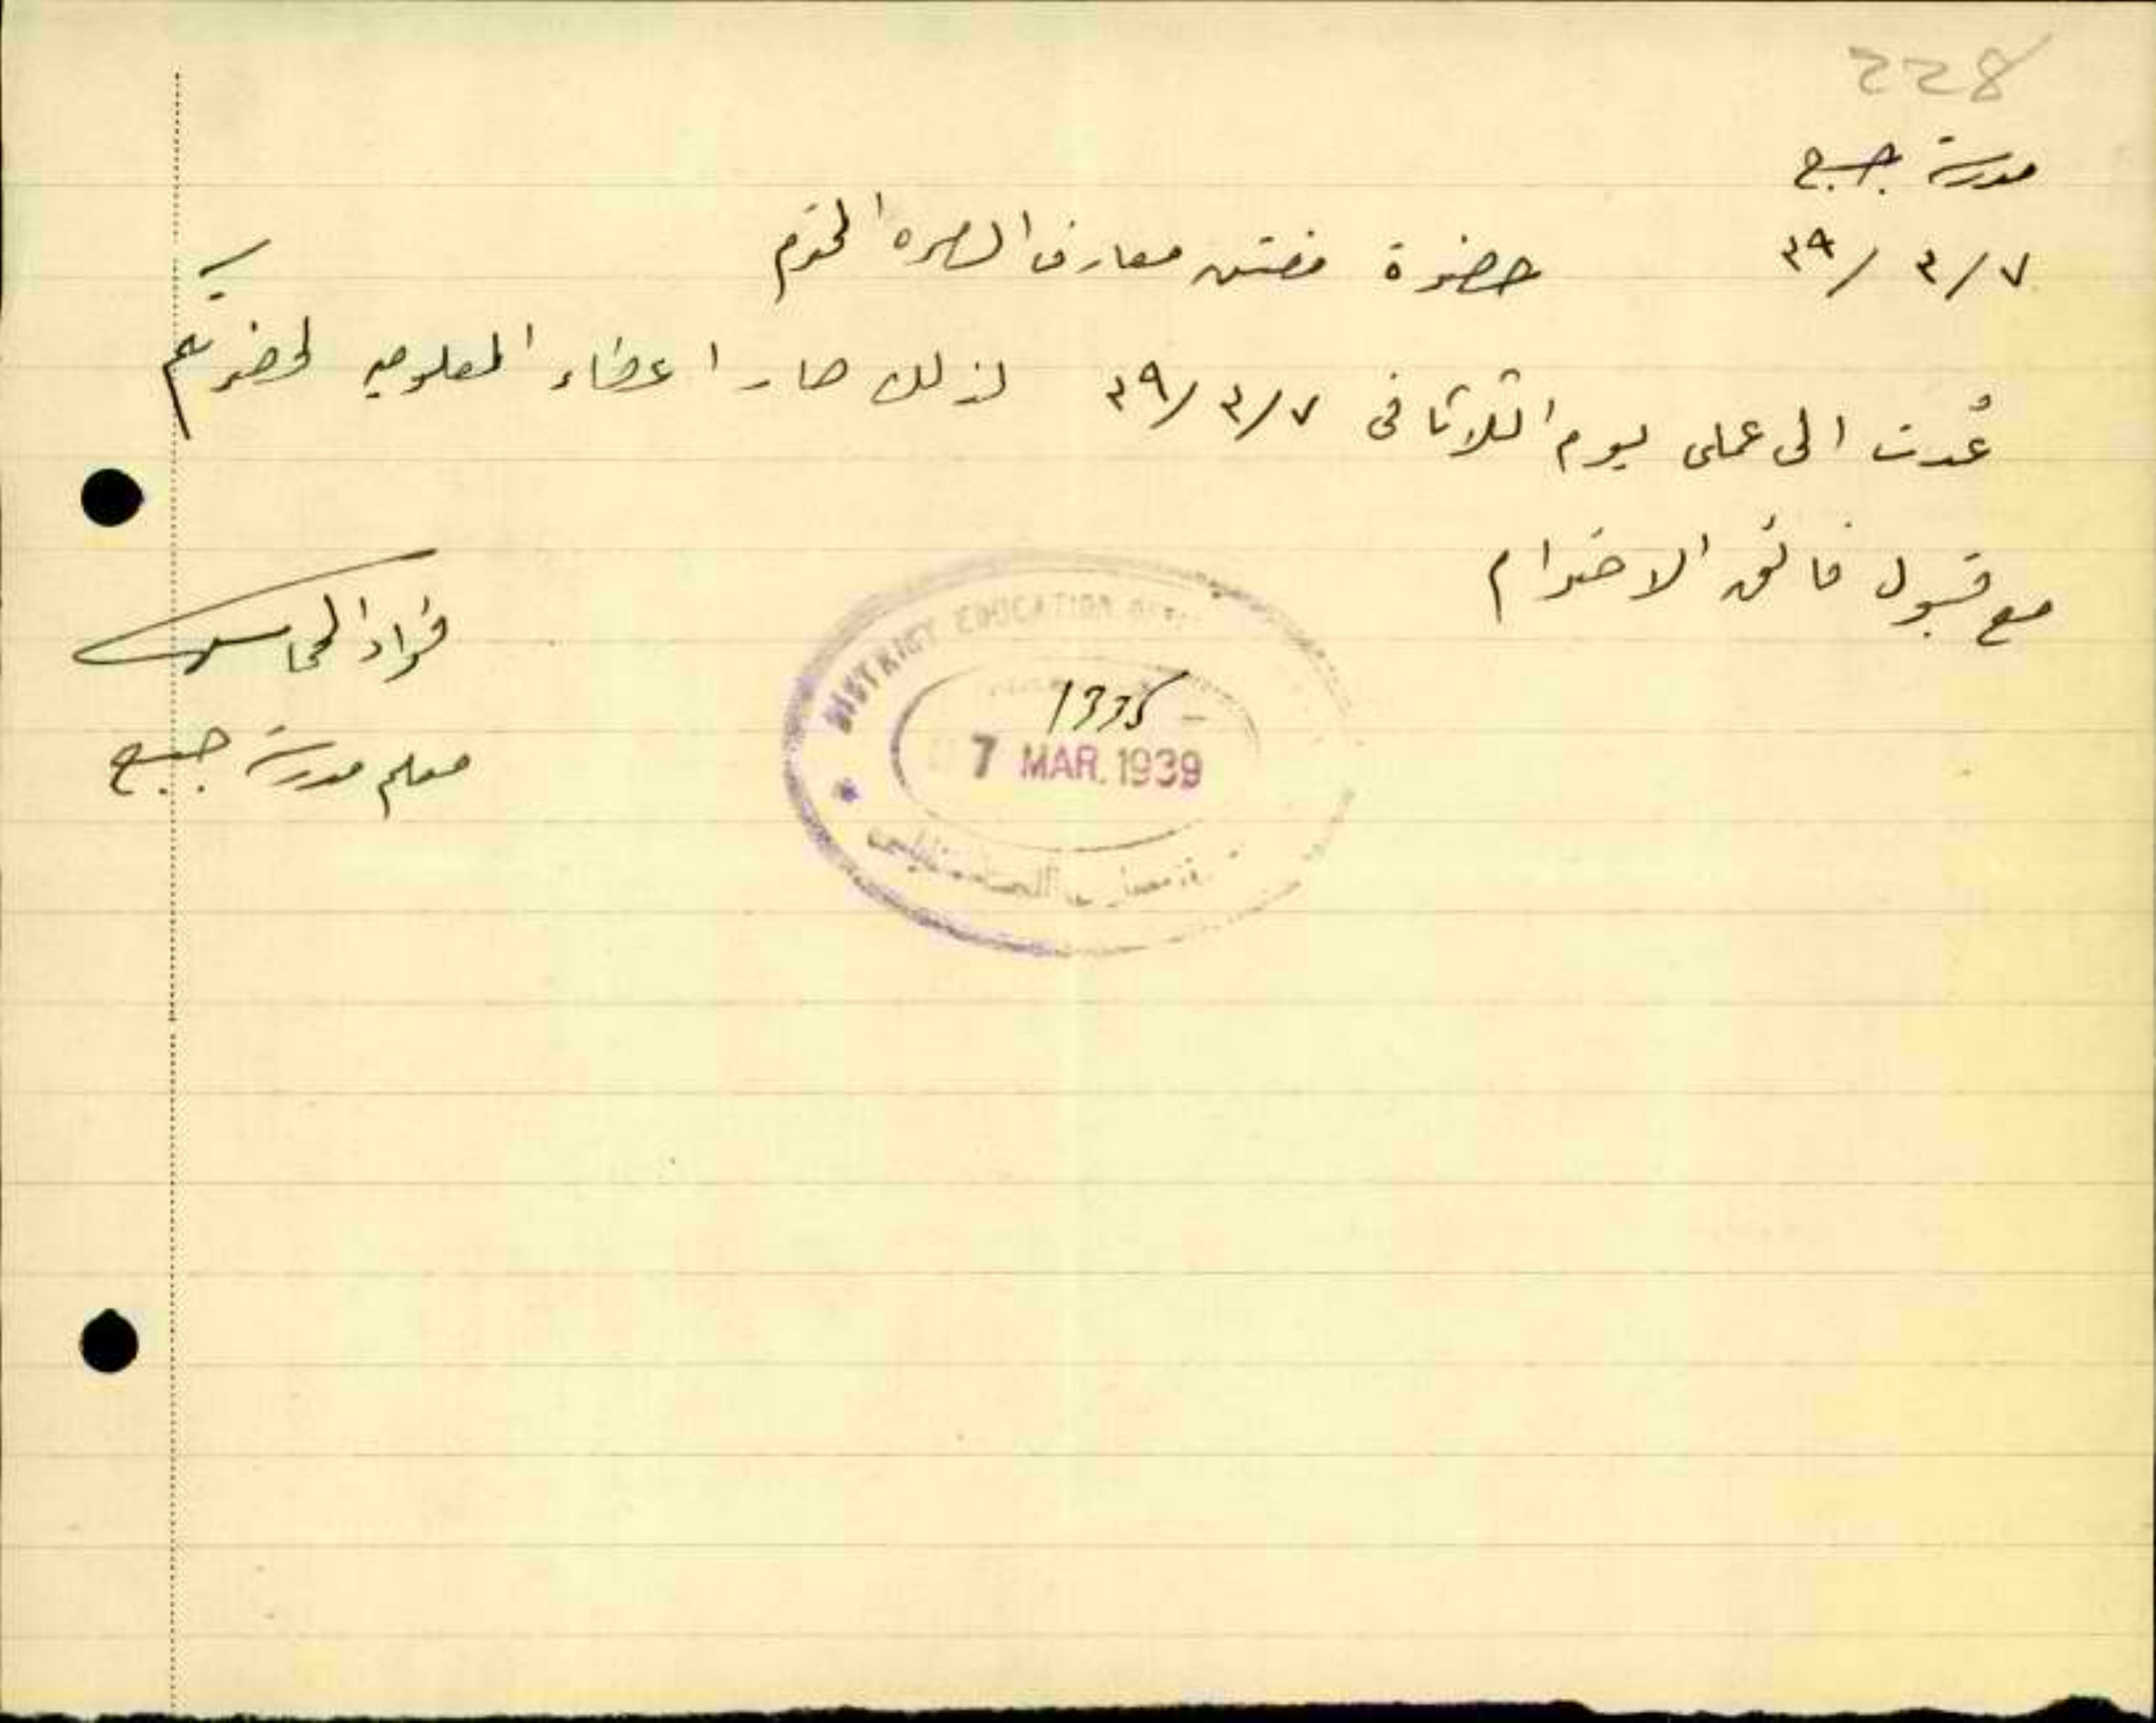 228
مدرسة جبع
٣٩/٣/٧
حضرة مفتش معارف الناصره المحترم
عُدت الى عملي يوم الثلاثا في ٣٩/٣/٧ لذلك صار اعطاء المعلوميه لحضرتكم
مع قبول فائق الاحترام
فؤاد
معلم مدرسة جبع
DISTRICT EDUCATION
1335
7 MAR. 1939